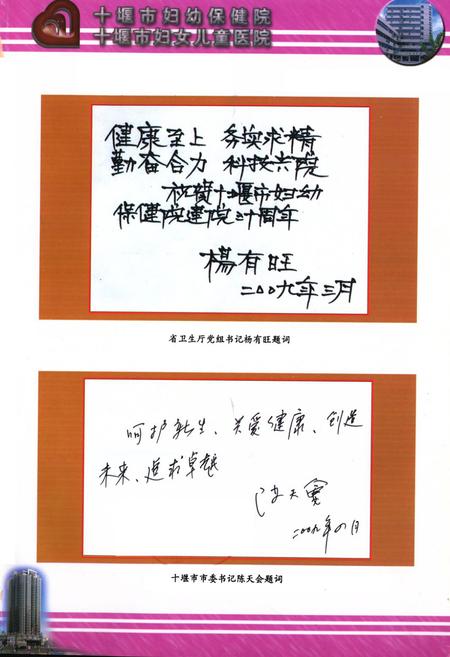 十堰市妇幼保健院
十堰市妇女儿童医院
健康至上 务实求精
勤奋合力 科技兴院
祝贺十堰市妇幼
保健院建院三十周年
杨有旺
二〇〇九年三月
省卫生厅党组书记杨有旺题词
呵护新生、关爱健康、创造
未来、追求卓越
陈天会
二〇〇九年 月
十堰市市委书记陈天会题词